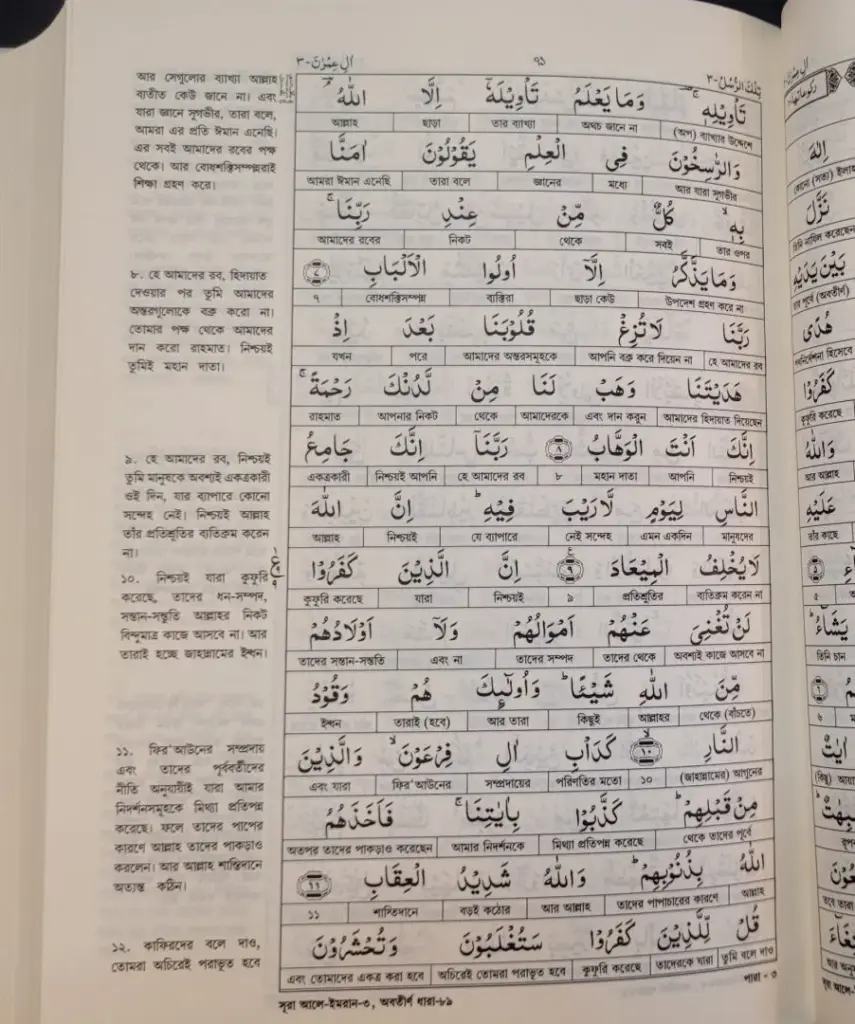 اٰلِ عِمْرٰنَ-٣
٧١
تِلْكَ الرُّسُلُ-٣
আর সেগুলোর ব্যাখ্যা আল্লাহ
ব্যতীত কেউ জানে না। এবং
যারা জ্ঞানে সুগভীর, তারা বলে,
আমরা এর প্রতি ঈমান এনেছি।
এর সবই আমাদের রবের পক্ষ
থেকে। আর বোধশক্তিসম্পন্নরাই
শিক্ষা গ্রহণ করে।
৮. হে আমাদের রব, হিদায়াত
দেওয়ার পর তুমি আমাদের
অন্তরগুলোকে বক্র করো না।
তোমার পক্ষ থেকে আমাদের
দান করো রাহমাত। নিশ্চয়ই
তুমিই মহান দাতা।
৯. হে আমাদের রব, নিশ্চয়ই
তুমি মানুষকে অবশ্যই একত্রকারী
ওই দিন, যার ব্যাপারে কোনো
সন্দেহ নেই। নিশ্চয়ই আল্লাহ
তাঁর প্রতিশ্রুতির ব্যতিক্রম করেন
না।
১০. নিশ্চয়ই যারা কুফুরি
করেছে, তাদের ধন-সম্পদ,
সন্তান-সন্ততি আল্লাহর নিকট
বিন্দুমাত্র কাজে আসবে না। আর
তারাই হচ্ছে জাহান্নামের ইন্ধন।
১১. ফির'আউনের সম্প্রদায়
এবং তাদের পূর্ববর্তীদের
নীতি অনুযায়ীই যারা আমার
নিদর্শনসমূহকে মিথ্যা প্রতিপন্ন
করেছে। ফলে তাদের পাপের
কারণে আল্লাহ তাদের পাকড়াও
করলেন। আর আল্লাহ শাস্তিদানে
অত্যন্ত কঠিন।
১২. কাফিরদের বলে দাও,
তোমরা অচিরেই পরাভূত হবে
تَاْوِيْلِهٖ ۚ وَمَا يَعْلَمُ تَاْوِيْلَهٗۤ اِلَّا اللّٰهُ ۘ
(অপ) ব্যাখ্যার উদ্দেশে অথচ জানে না তার ব্যাখ্যা ছাড়া আল্লাহ
وَالرّٰسِخُوْنَ فِى الْعِلْمِ يَقُوْلُوْنَ اٰمَنَّا
আর যারা সুগভীর মধ্যে জ্ঞানের তারা বলে আমরা ঈমান এনেছি
بِهٖ ۙ كُلٌّ مِّنْ عِنْدِ رَبِّنَا ۚ
তার ওপর সবই থেকে নিকট আমাদের রবের
وَمَا يَذَّكَّرُ اِلَّاۤ اُولُوا الْاَلْبَابِ ٧
উপদেশ গ্রহণ করে না ছাড়া কেউ ব্যক্তিরা বোধশক্তিসম্পন্ন ৭
رَبَّنَا لَا تُزِغْ قُلُوْبَنَا بَعْدَ اِذْ
হে আমাদের রব আপনি বক্র করে দিয়েন না আমাদের অন্তরসমূহকে পরে যখন
هَدَيْتَنَا وَهَبْ لَنَا مِنْ لَّدُنْكَ رَحْمَةً ۚ
আমাদের হিদায়াত দিয়েছেন এবং দান করুন আমাদেরকে থেকে আপনার নিকট রাহমাত
اِنَّكَ اَنْتَ الْوَهَّابُ ٨ رَبَّنَاۤ اِنَّكَ جَامِعُ
নিশ্চয়ই আপনি মহান দাতা ৮ হে আমাদের রব নিশ্চয়ই আপনি একত্রকারী
النَّاسِ لِيَوْمٍ لَّا رَيْبَ فِيْهِ ؕ اِنَّ اللّٰهَ
মানুষদের এমন একদিন নেই সন্দেহ যে ব্যাপারে নিশ্চয়ই আল্লাহ
لَا يُخْلِفُ الْمِيْعَادَ ٩ اِنَّ الَّذِيْنَ كَفَرُوْا
ব্যতিক্রম করেন না প্রতিশ্রুতির ৯ নিশ্চয়ই যারা কুফুরি করেছে
لَنْ تُغْنِىَ عَنْهُمْ اَمْوَالُهُمْ وَلَاۤ اَوْلَادُهُمْ
অবশ্যই কাজে আসবে না তাদের থেকে তাদের সম্পদ এবং না তাদের সন্তান-সন্ততি
مِّنَ اللّٰهِ شَيْـًٔا ؕ وَاُولٰٓئِكَ هُمْ وَقُوْدُ
থেকে (বাঁচতে) আল্লাহর কিছুই আর তারা তারাই (হবে) ইন্ধন
النَّارِ ١٠ كَدَاْبِ اٰلِ فِرْعَوْنَ ۙ وَالَّذِيْنَ
(জাহান্নামের) আগুনের ১০ পরিণতির মতো সম্প্রদায়ের ফির'আউনের এবং যারা
مِنْ قَبْلِهِمْ ؕ كَذَّبُوْا بِاٰيٰتِنَا ۚ فَاَخَذَهُمُ
থেকে তাদের পূর্বে মিথ্যা প্রতিপন্ন করেছে আমার নিদর্শনকে অতপর তাদের পাকড়াও করেছেন
اللّٰهُ بِذُنُوْبِهِمْ ؕ وَاللّٰهُ شَدِيْدُ الْعِقَابِ ١١
আল্লাহ তাদের পাপাচারের কারণে আর আল্লাহ বড়ই কঠোর শাস্তিদানে ১১
قُلْ لِّلَّذِيْنَ كَفَرُوْا سَتُغْلَبُوْنَ وَتُحْشَرُوْنَ
তুমি বলে দাও তাদেরকে যারা কুফুরি করেছে অচিরেই তোমরা পরাভূত হবে এবং তোমাদের একত্র করা হবে
সূরা আলে-ইমরান-৩, অবতীর্ণ ধারা-৮৯
পারা - ৩
اِلٰهَ
نَزَّلَ
তিনি নাযিল করেছেন
بَيْنَ يَدَيْهِ
পূর্বে (অবতীর্ণ)
هُدًى
كَفَرُوْا
কুফুরি করেছে
وَاللّٰهُ
আর আল্লাহ
عَلَيْهِ
তাঁর কাছে
৫
يَشَآءُ ؕ
তিনি চান
৬
اٰيٰتٌ